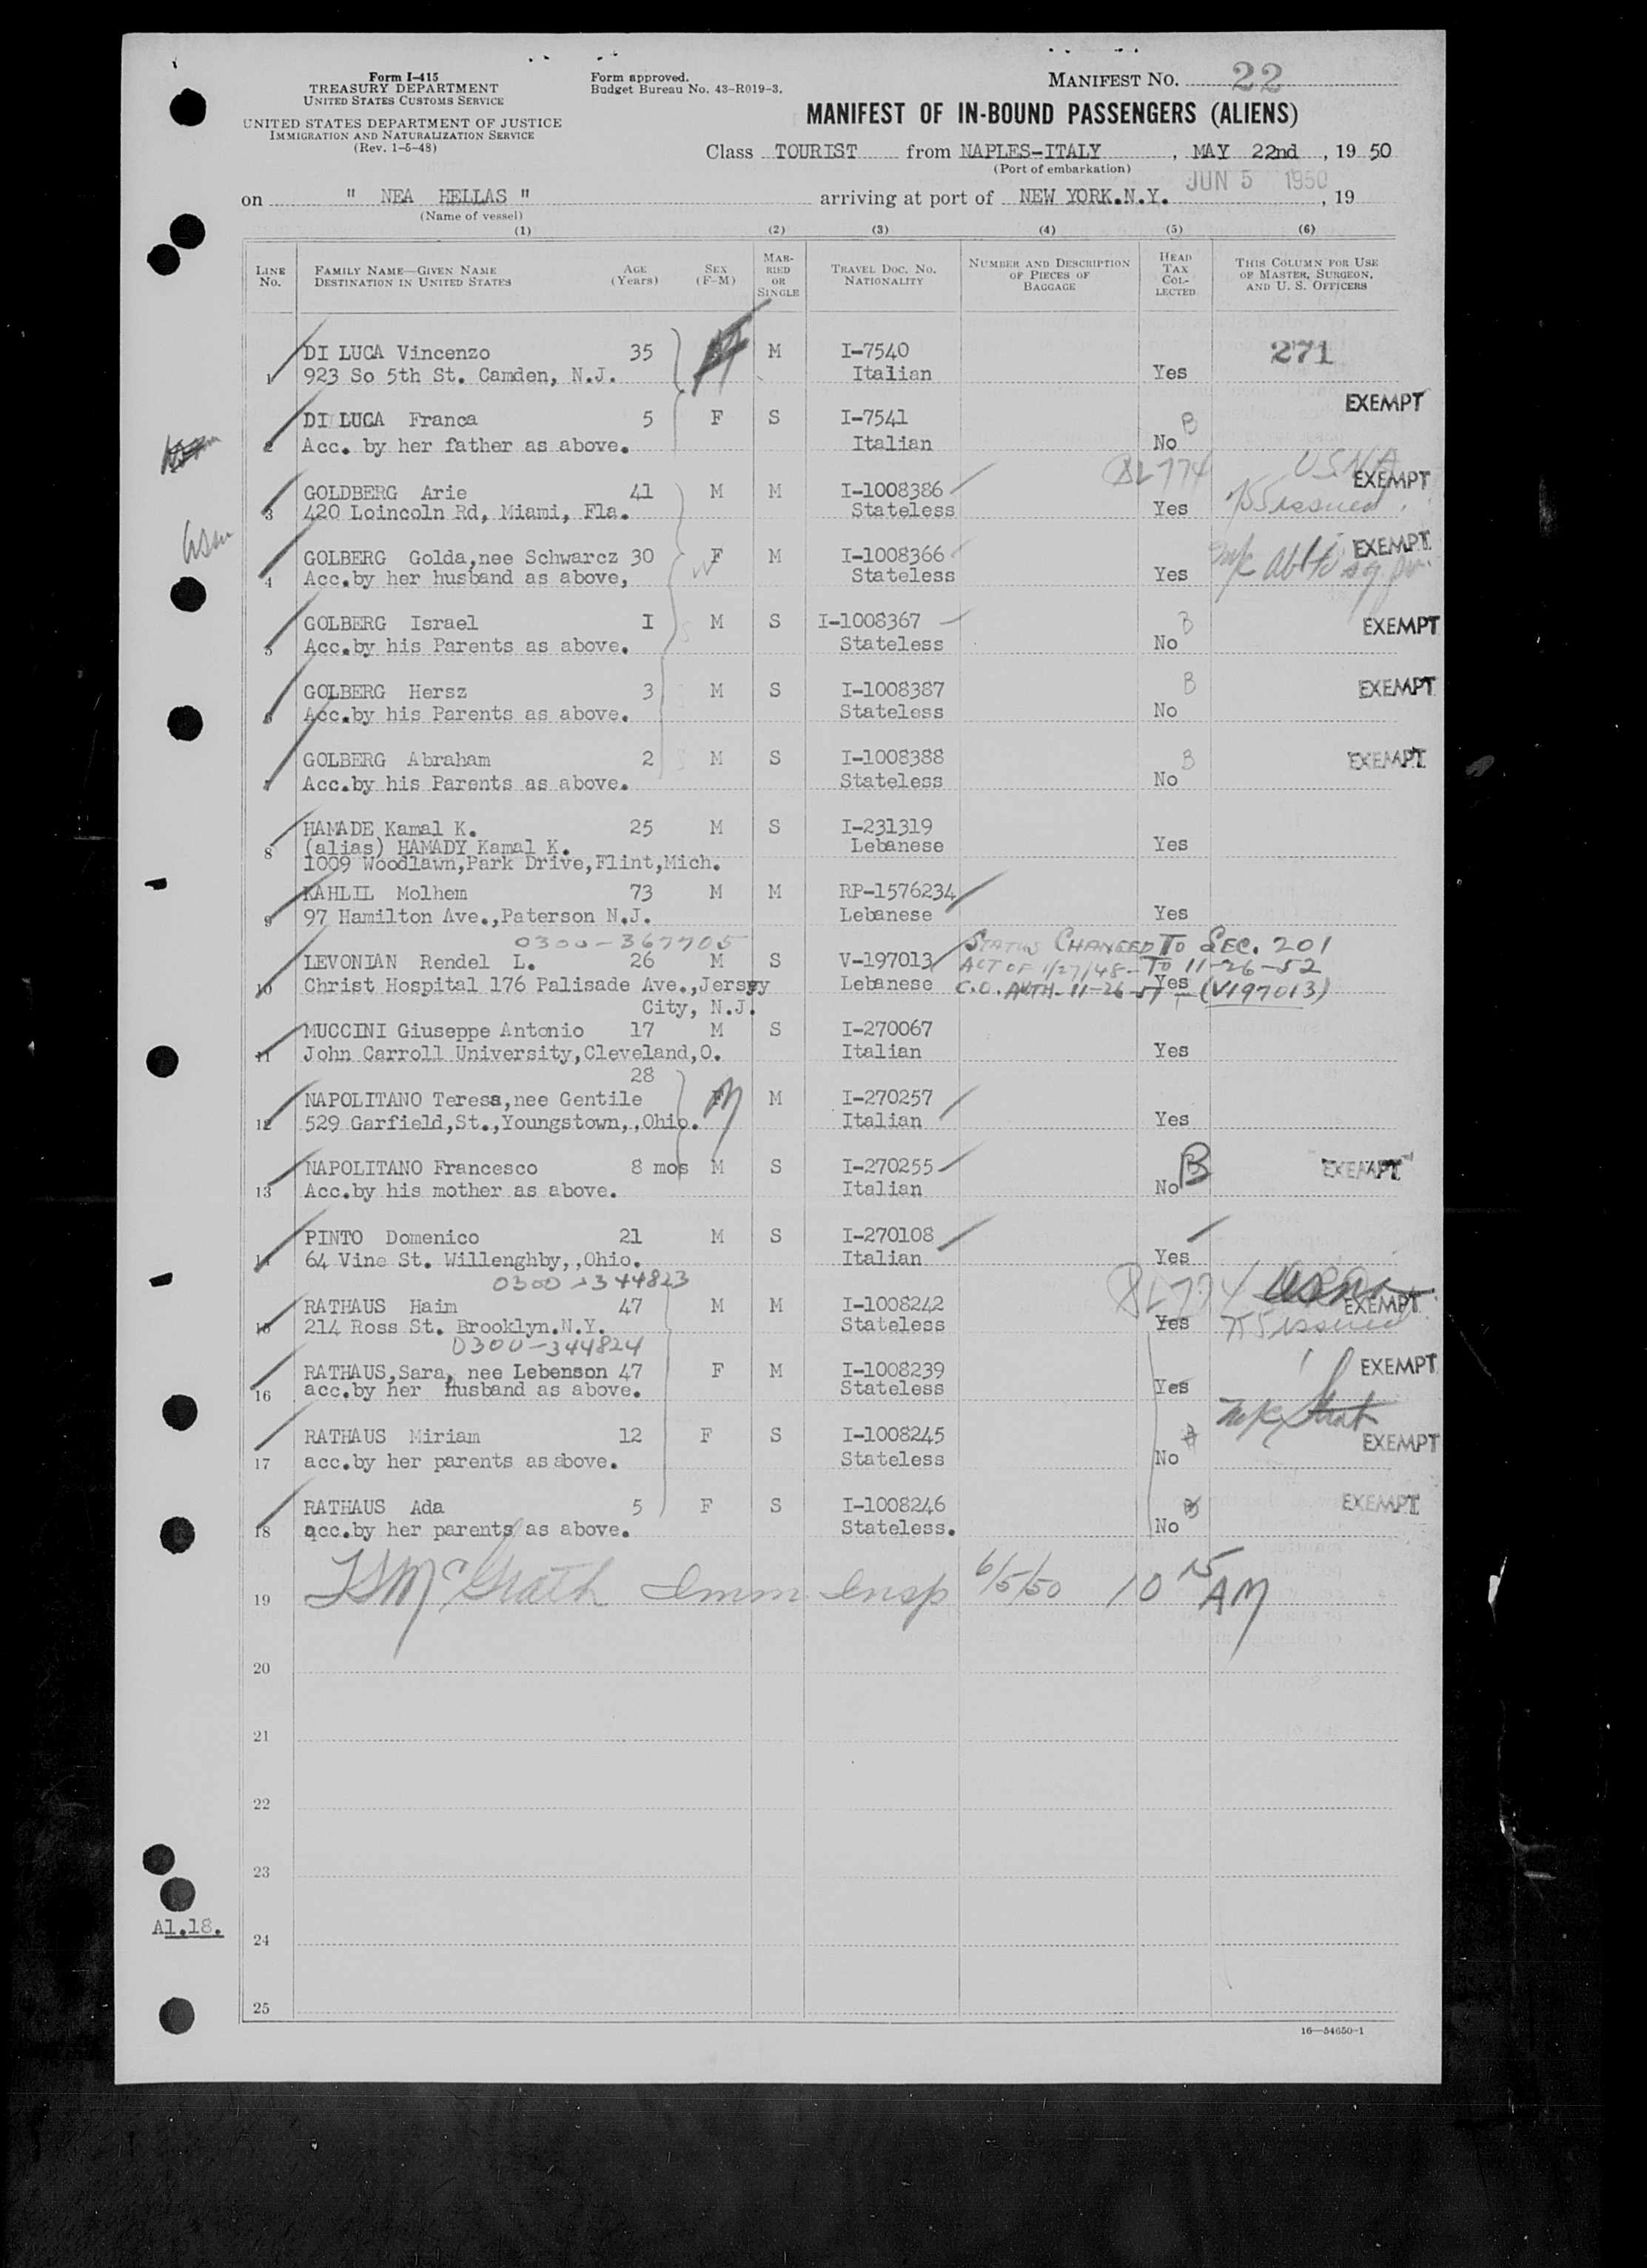 Form I-415
TREASURY DEPARTMENT
UNITED STATES CUSTOMS SERVICE
UNITED STATES DEPARTMENT OF JUSTICE
IMMIGRATION AND NATURALIZATION SERVICE
(Rev. 1-5-48)
Form approved.
Budget Bureau No. 43-R019-3.
MANIFEST NO. 22
MANIFEST OF IN-BOUND PASSENGERS (ALIENS)
Class TOURIST from NAPLES-ITALY , MAY 22nd , 19 50
(Port of embarkation)
JUN 5 1950
on " NEA HELLAS " arriving at port of NEW YORK.N.Y. , 19
(Name of vessel)
(1) (2) (3) (4) (5) (6)
LINE No. FAMILY NAME—GIVEN NAME DESTINATION IN UNITED STATES AGE (Years) SEX (F-M) MARRIED OR SINGLE TRAVEL DOC. NO. NATIONALITY NUMBER AND DESCRIPTION OF PIECES OF BAGGAGE HEAD TAX COLLECTED THIS COLUMN FOR USE OF MASTER, SURGEON, AND U. S. OFFICERS
DI LUCA Vincenzo 35 M I-7540 271
1 923 So 5th St. Camden, N.J. Italian Yes
EXEMPT
DI LUCA Franca 5 F S I-7541 B
2 Acc. by her father as above. Italian No
8L774 USNA
GOLDBERG Arie 41 M M I-1008386 EXEMPT
3 420 Loincoln Rd, Miami, Fla. Stateless Yes issued
GOLBERG Golda,nee Schwarcz 30 F M I-1008366 EXEMPT
4 Acc.by her husband as above, Stateless Yes
GOLBERG Israel I M S I-1008367 B EXEMPT
5 Acc.by his Parents as above. Stateless No
GOLBERG Hersz 3 M S I-1008387 B EXEMPT
6 Acc.by his Parents as above. Stateless No
GOLBERG Abraham 2 M S I-1008388 B EXEMPT
7 Acc.by his Parents as above. Stateless No
HAMADE Kamal K. 25 M S I-231319
8 (alias) HAMADY Kamal K. Lebanese Yes
1009 Woodlawn,Park Drive,Flint,Mich.
KAHLIL Molhem 73 M M RP-1576234
9 97 Hamilton Ave.,Paterson N.J. Lebanese Yes
0300-367705 STATUS CHANGED TO SEC. 201
LEVONIAN Rendel L. 26 M S V-197013 ACT OF 1/27/48 - TO 11-26-52
10 Christ Hospital 176 Palisade Ave.,Jersey Lebanese Yes C.O. AUTH. 11-26-51 - (V197013)
City, N.J.
MUCCINI Giuseppe Antonio 17 M S I-270067
11 John Carroll University,Cleveland,O. Italian Yes
28
NAPOLITANO Teresa,nee Gentile F M I-270257
12 529 Garfield,St.,Youngstown,,Ohio. Italian Yes
NAPOLITANO Francesco 8 mos M S I-270255 B EXEMPT
13 Acc.by his mother as above. Italian No
PINTO Domenico 21 M S I-270108
14 64 Vine St. Willenghby,,Ohio. Italian Yes
0300-344823 8L774
RATHAUS Haim 47 M M I-1008242 EXEMPT
15 214 Ross St. Brooklyn.N.Y. Stateless Yes issued
0300-344824
RATHAUS,Sara, nee Lebenson 47 F M I-1008239 EXEMPT
16 acc.by her husband as above. Stateless Yes
RATHAUS Miriam 12 F S I-1008245 EXEMPT
17 acc.by her parents as above. Stateless No
RATHAUS Ada 5 F S I-1008246 B EXEMPT
18 acc.by her parents as above. Stateless. No
19 McGrath Imm Insp 6/5/50 10 15 AM
20
21
22
23
A1.18.
24
25
16—54650-1